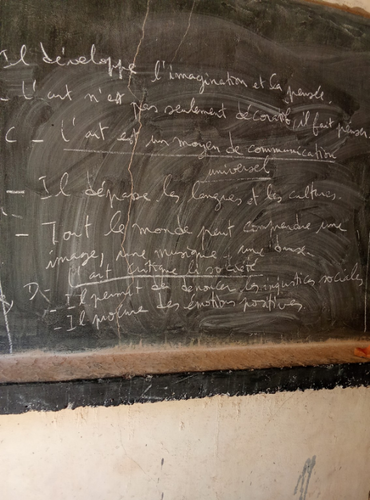 Il développe l'imagination et la pensée.
- L'art n'est pas seulement décoratif, il fait penser
C - L'art est un moyen de communication
universel
- Il dépasse les langues et les cultures.
- Tout le monde peut comprendre une
image, une musique, une danse
D - L'art critique la société
- Il permet de dénoncer les injustices sociales
- Il procure des émotions positives.